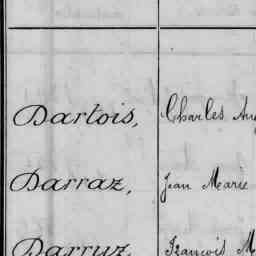 Dartois, Charles
Darraz, Jean Marie
Darruz François M